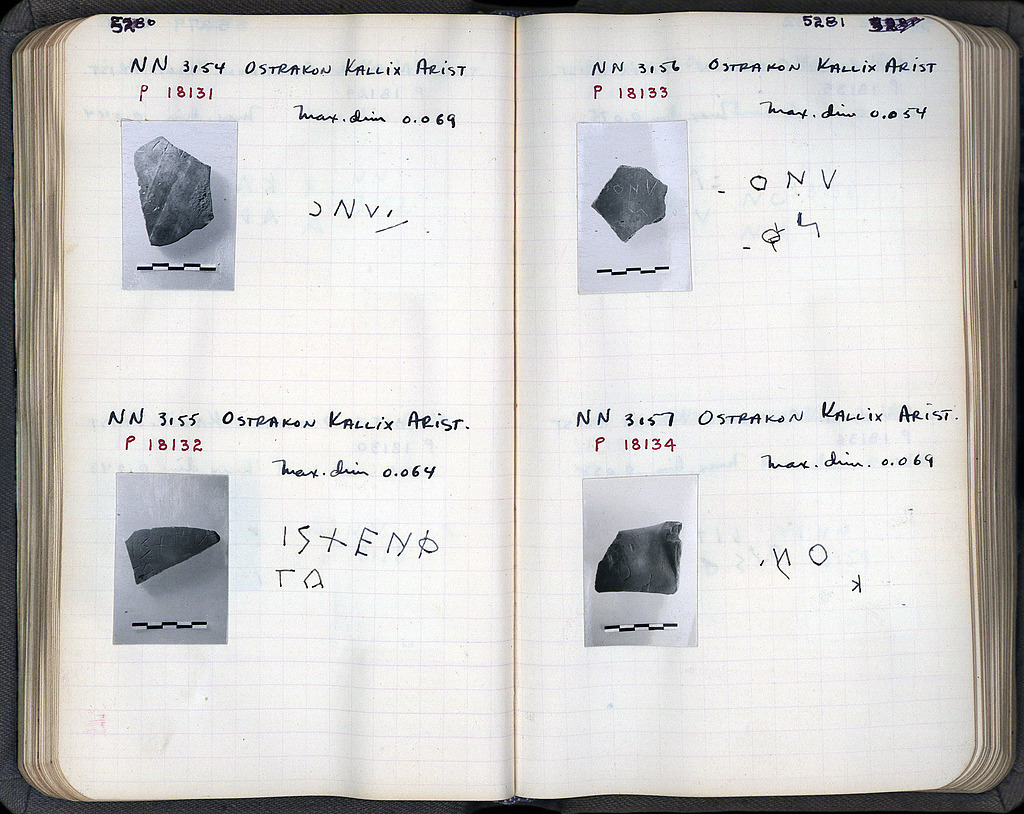 5280
NN 3154 OSTRAKON KALLIX ARIST
P 18131
Max. dim 0.069
ΟΝV
NN 3155 OSTRAKON KALLIX ARIST.
P 18132
Max. dim 0.064
ΙSΧΕΝΟ
ΓΑ
5281
NN 3156 OSTRAKON KALLIX ARIST
P 18133
Max. dim 0.054
- ΟΝV
NN 3157 OSTRAKON KALLIX ARIST.
P 18134
Max. dim. 0.069
ΝΟ
Κ